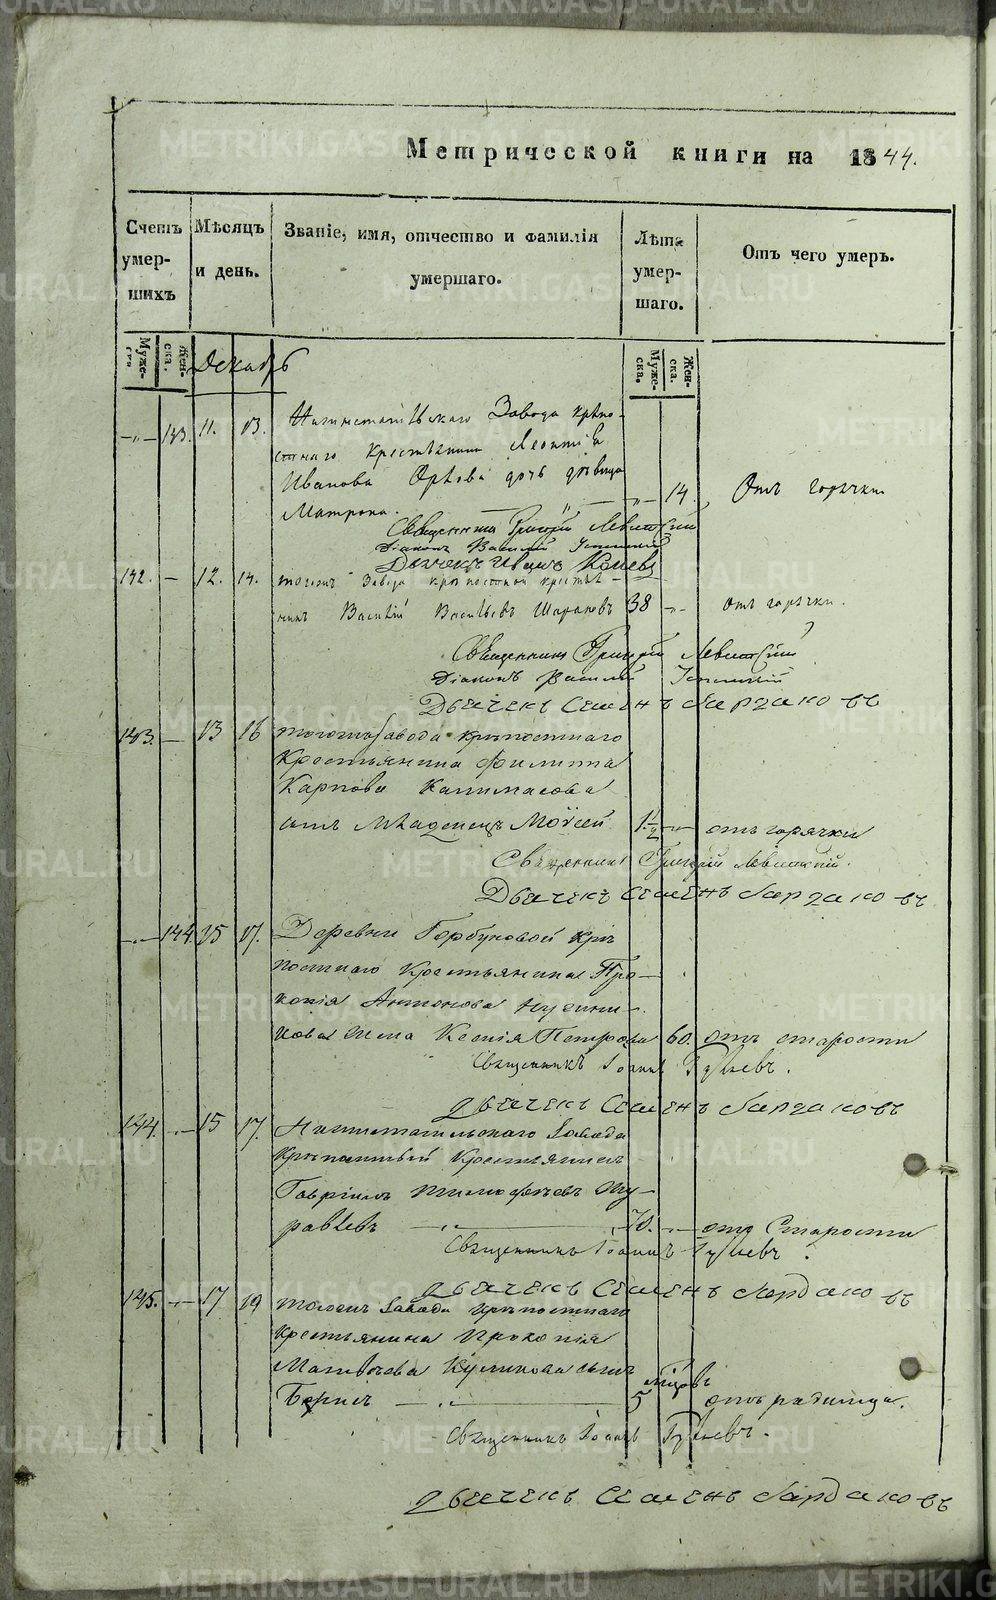 Метрической книги на 1844.
Счетъ умершихъ
Мѣсяцъ и день.
Званіе, имя, отчество и фамилія умершаго.
Лѣта умершаго.
Отъ чего умеръ.
Мужеска. Женска.
Мужеска. Женска.
Декабрь
143. 11. 13. завода крѣпо-
стнаго крестьянина Леонтія
Иванова Орлова дочь дѣвица
Матрона. 14. Отъ горячки
Священникъ Григорій Левитскій
Діаконъ Василій
Дьячекъ Иванъ
142. 12. 14. тогожъ завода крѣпостной крестья-
нинъ Василій Васильевъ 38 отъ горячки.
Священникъ Григорій Левитскій
Діаконъ Василій
Дьячекъ Семенъ
143. 13 16 тогожъ завода крѣпостнаго
Крестьянина Филиппа
Карпова
сынъ младенецъ Моѵсей 1 1/2 отъ горячки
Священникъ Григорій Левитскій.
Дьячекъ Семенъ
144 15 17. Деревни Горбуновой крѣ
постнаго Крестьянина Про-
копія Антонова
жена Ксенія Петрова 60. отъ старости
Священникъ Іоаннъ
Дьячекъ Семенъ
144. 15 17. завода
крѣпостный Крестьянинъ
Гавріилъ Тимофѣевъ Му-
равьевъ 70. отъ Старости
Священникъ Іоаннъ
Дьячекъ Семенъ
145. 17 19 тогожъ завода крѣпостнаго
крестьянина Прокопія
Матвѣева Куликова сынъ
Борисъ 5 отъ родимца.
Священникъ Іоаннъ
Дьячекъ Семенъ
METRIKI.GASO-URAL.RU